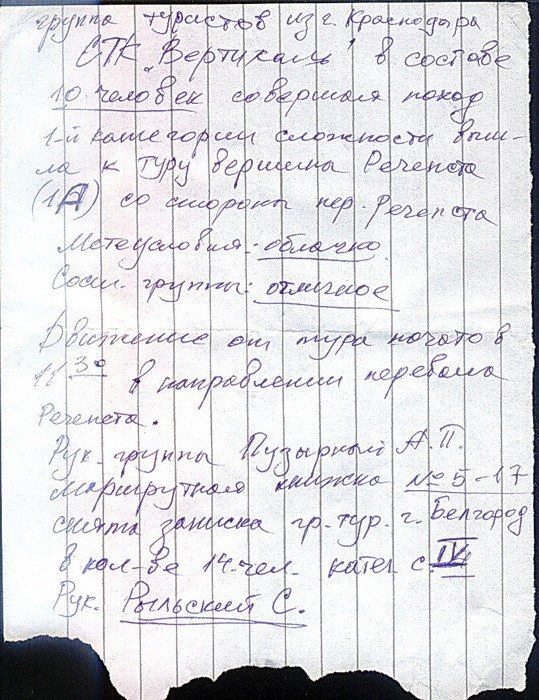 группа туристов из г. Краснодара
СТК "Вертикаль" в составе
10 человек совершая поход
1-й категории сложности выш-
ла к туру вершины Речепста
(1А) со стороны пер. Речепста
Метеусловия: облачно
Сост. группы: отличное
Движение от тура начато в
11 30 в направлении перевала
Речепста.
Рук. группы Пузырный А.П.
Маршрутная книжка № 5-17
снята записка гр. тур. г. Белгород
в кол-ве 14 чел. катег. с. IV
Рук. Рыльский С.